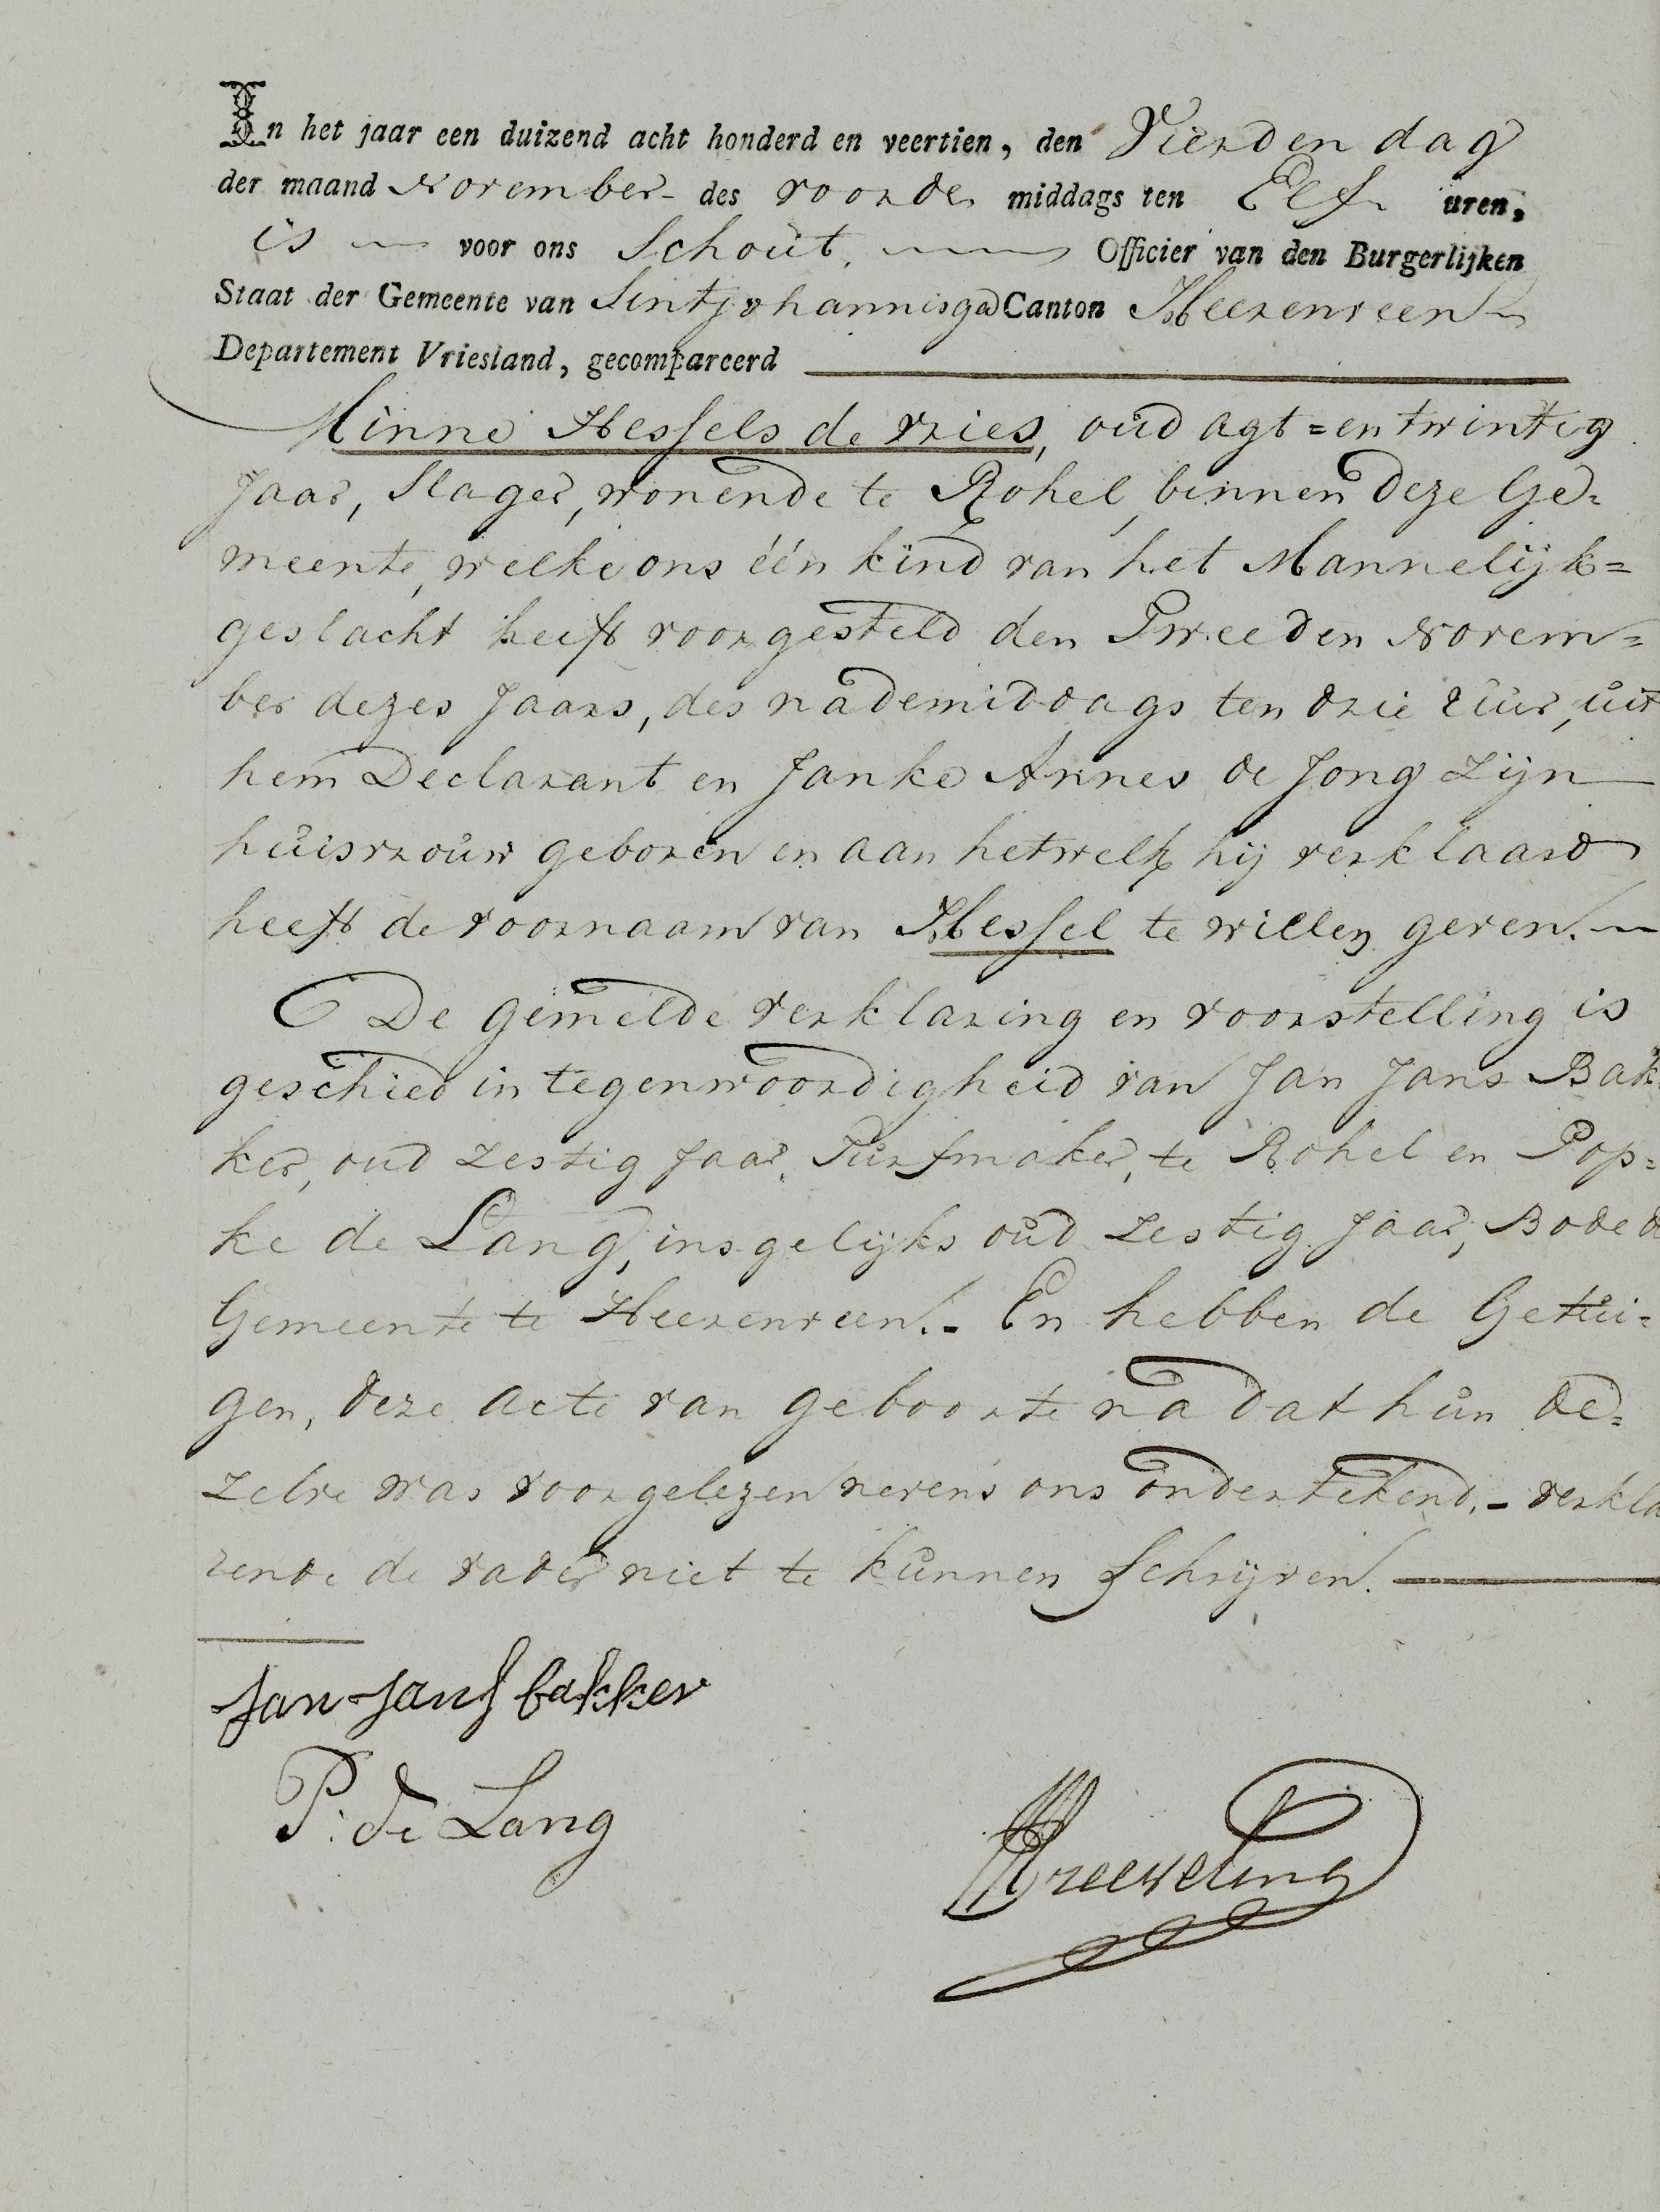 In het jaar een duizend acht honderd en veertien, den Vierden dag
der maand November - des voorde middags ten Elf uren,
is voor ons Schout, Officier van den Burgerlijken
Staat der Gemeente van Sintjohannisga Canton Heerenveen
Departement Vriesland, gecompareerd
Minne Hessels de Vries, oud agt=en twintig
Jaar, Slager, wonende te Rohel, binnen deze Ge=
meente, welke ons één kind van het Mannelijk=
geslacht heeft voorgesteld den Tweeden Novem=
ber dezes Jaars, des nademiddags ten drie uur, uit
hem Declarant en Janke Annes de Jong zijn
huisvrouw geboren en aan hetwelk hij verklaard
heeft de voornaam van Hessel te willen geven.
De gemelde verklaring en voorstelling is
geschied in tegenwoordigheid van Jan Jans Bak=
ker, oud zestig Jaar, Turfmaker, te Rohel en Pop=
ke de Lang, insgelijks oud zestig Jaar, Bode d
Gemeente te Heerenveen. - En hebben de Getui=
gen, deze acte van geboorte na dat hun de=
zelve was voorgelezen nevens ons ondertekend. - verkla
rende de vader niet te kunnen schrijven.
Jan Jans bakker
P: de Lang